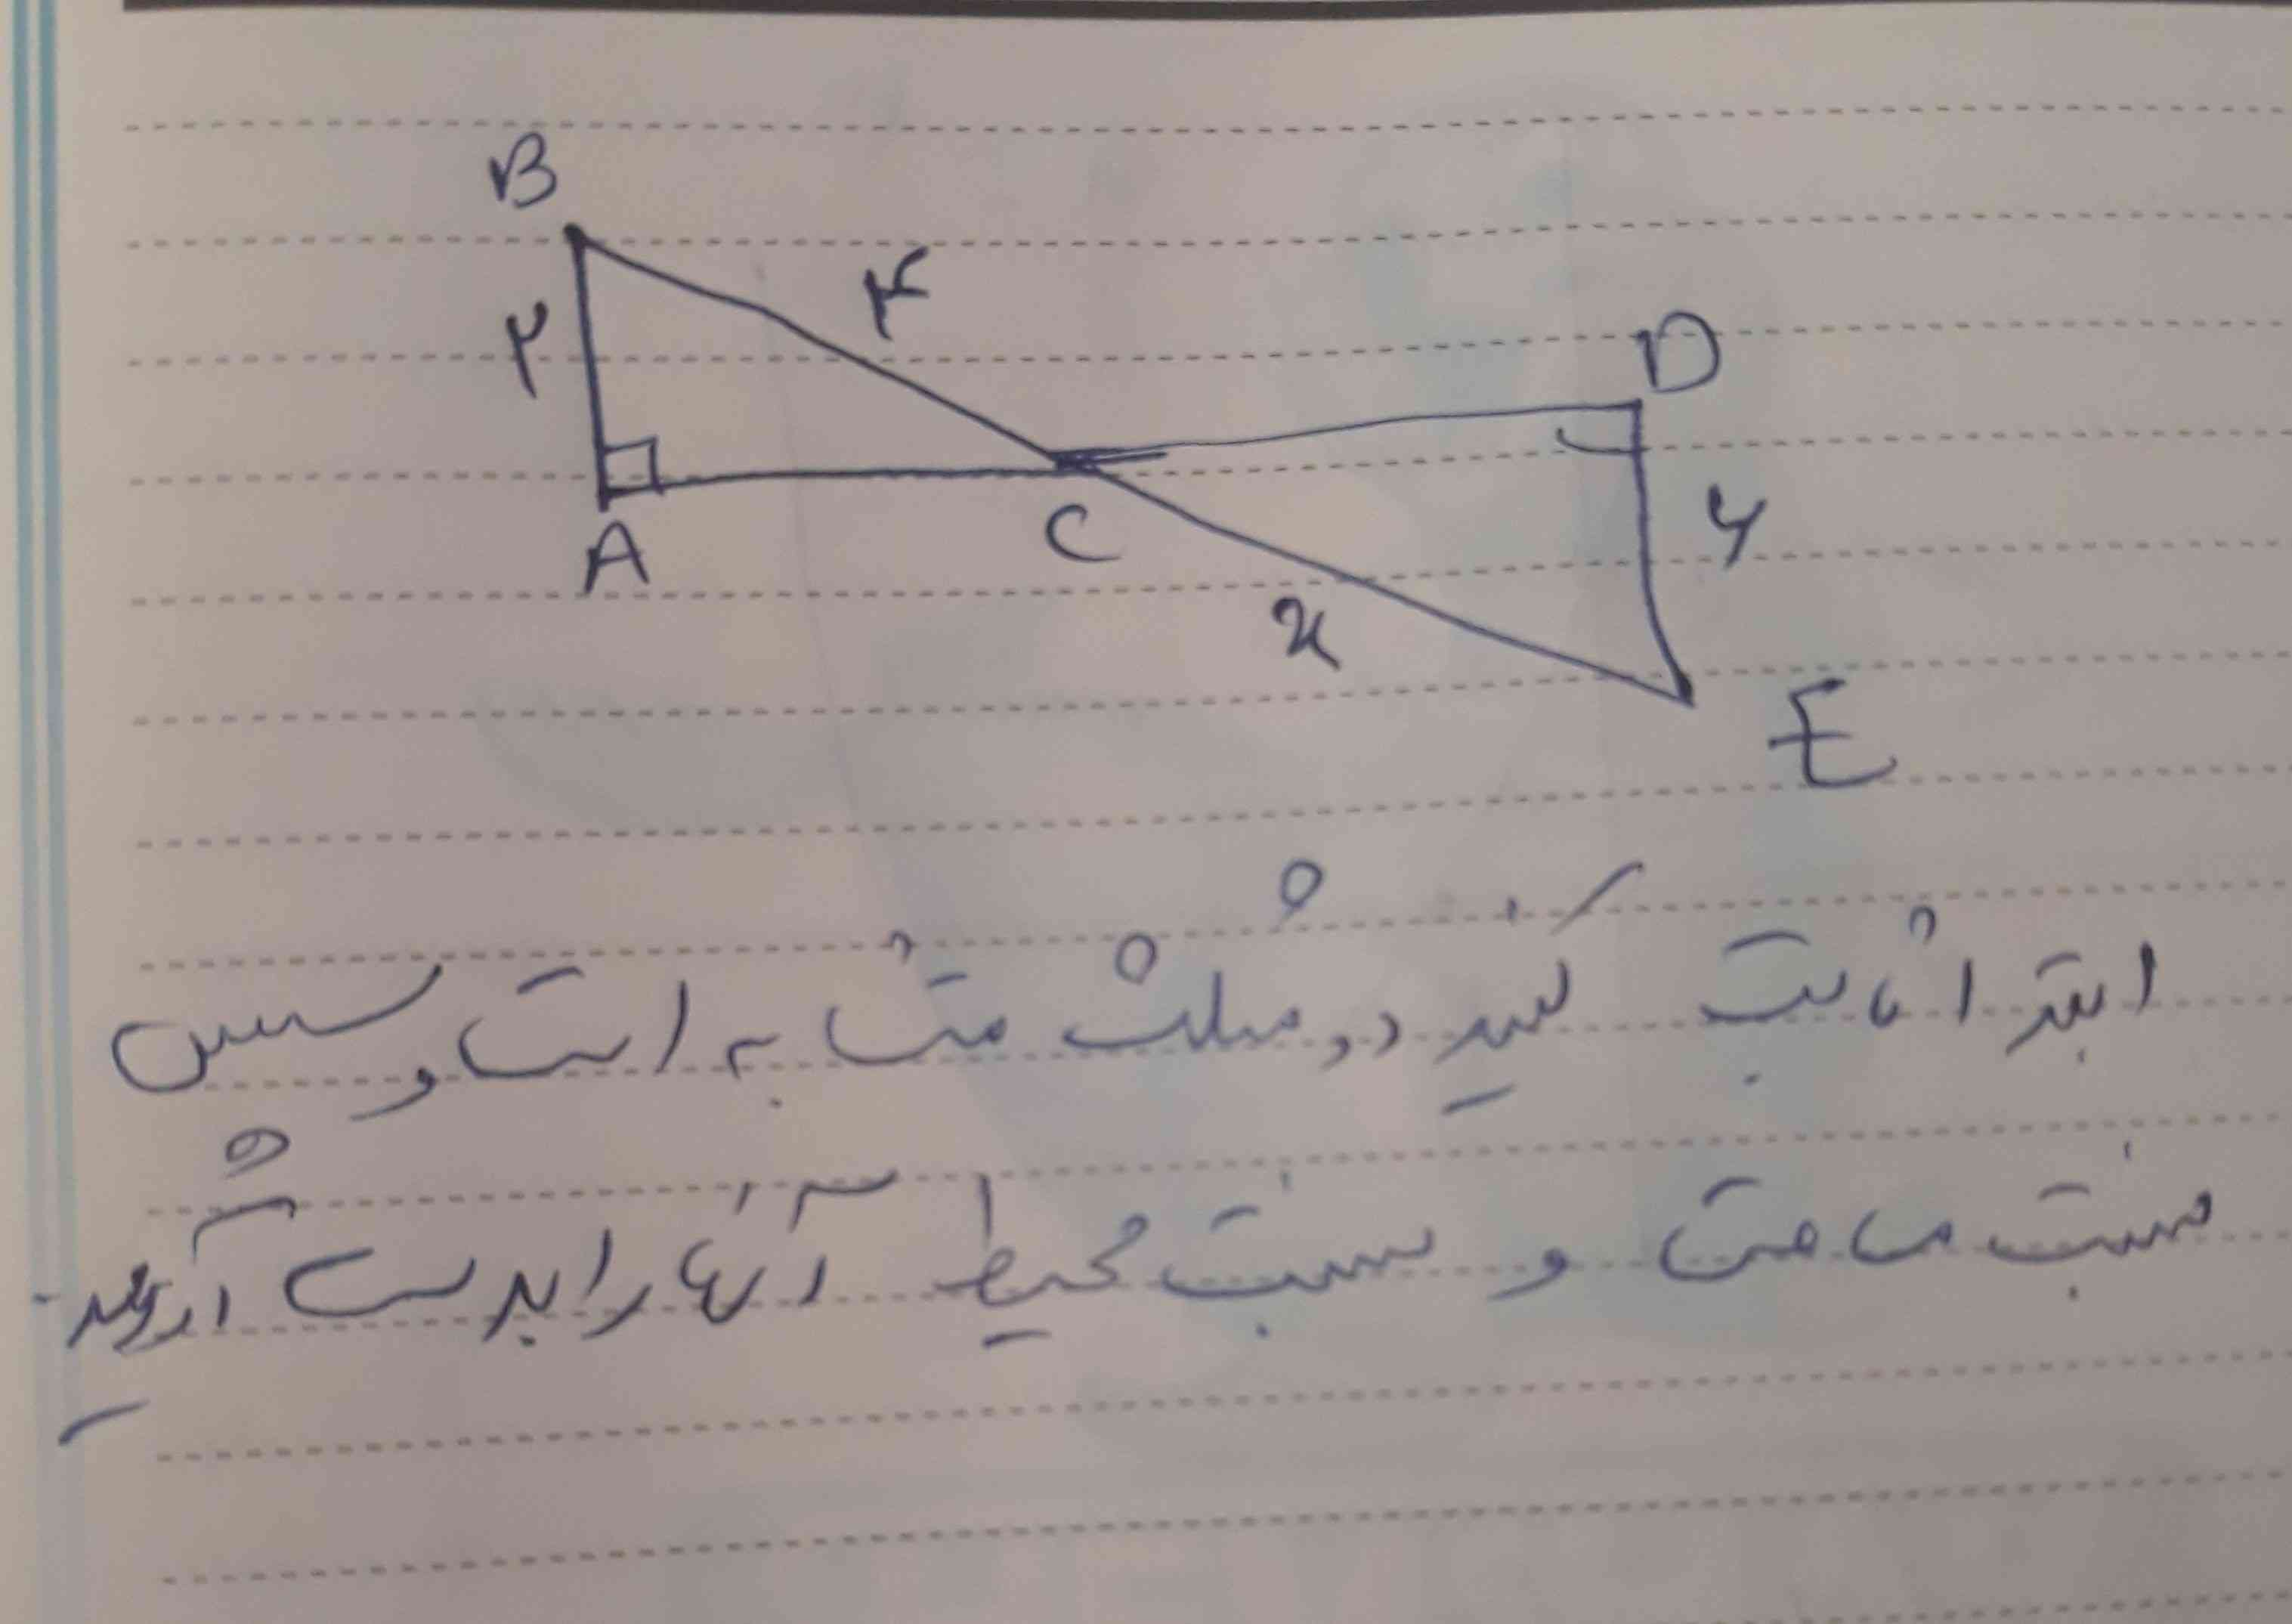 B
۴
۲
D
۶
A
C
x
E
ابتدا ثابت کنید دو مثلث متشابه است و سپس
نسبت مساحت و نسبت محیط آنها را بدست آورید